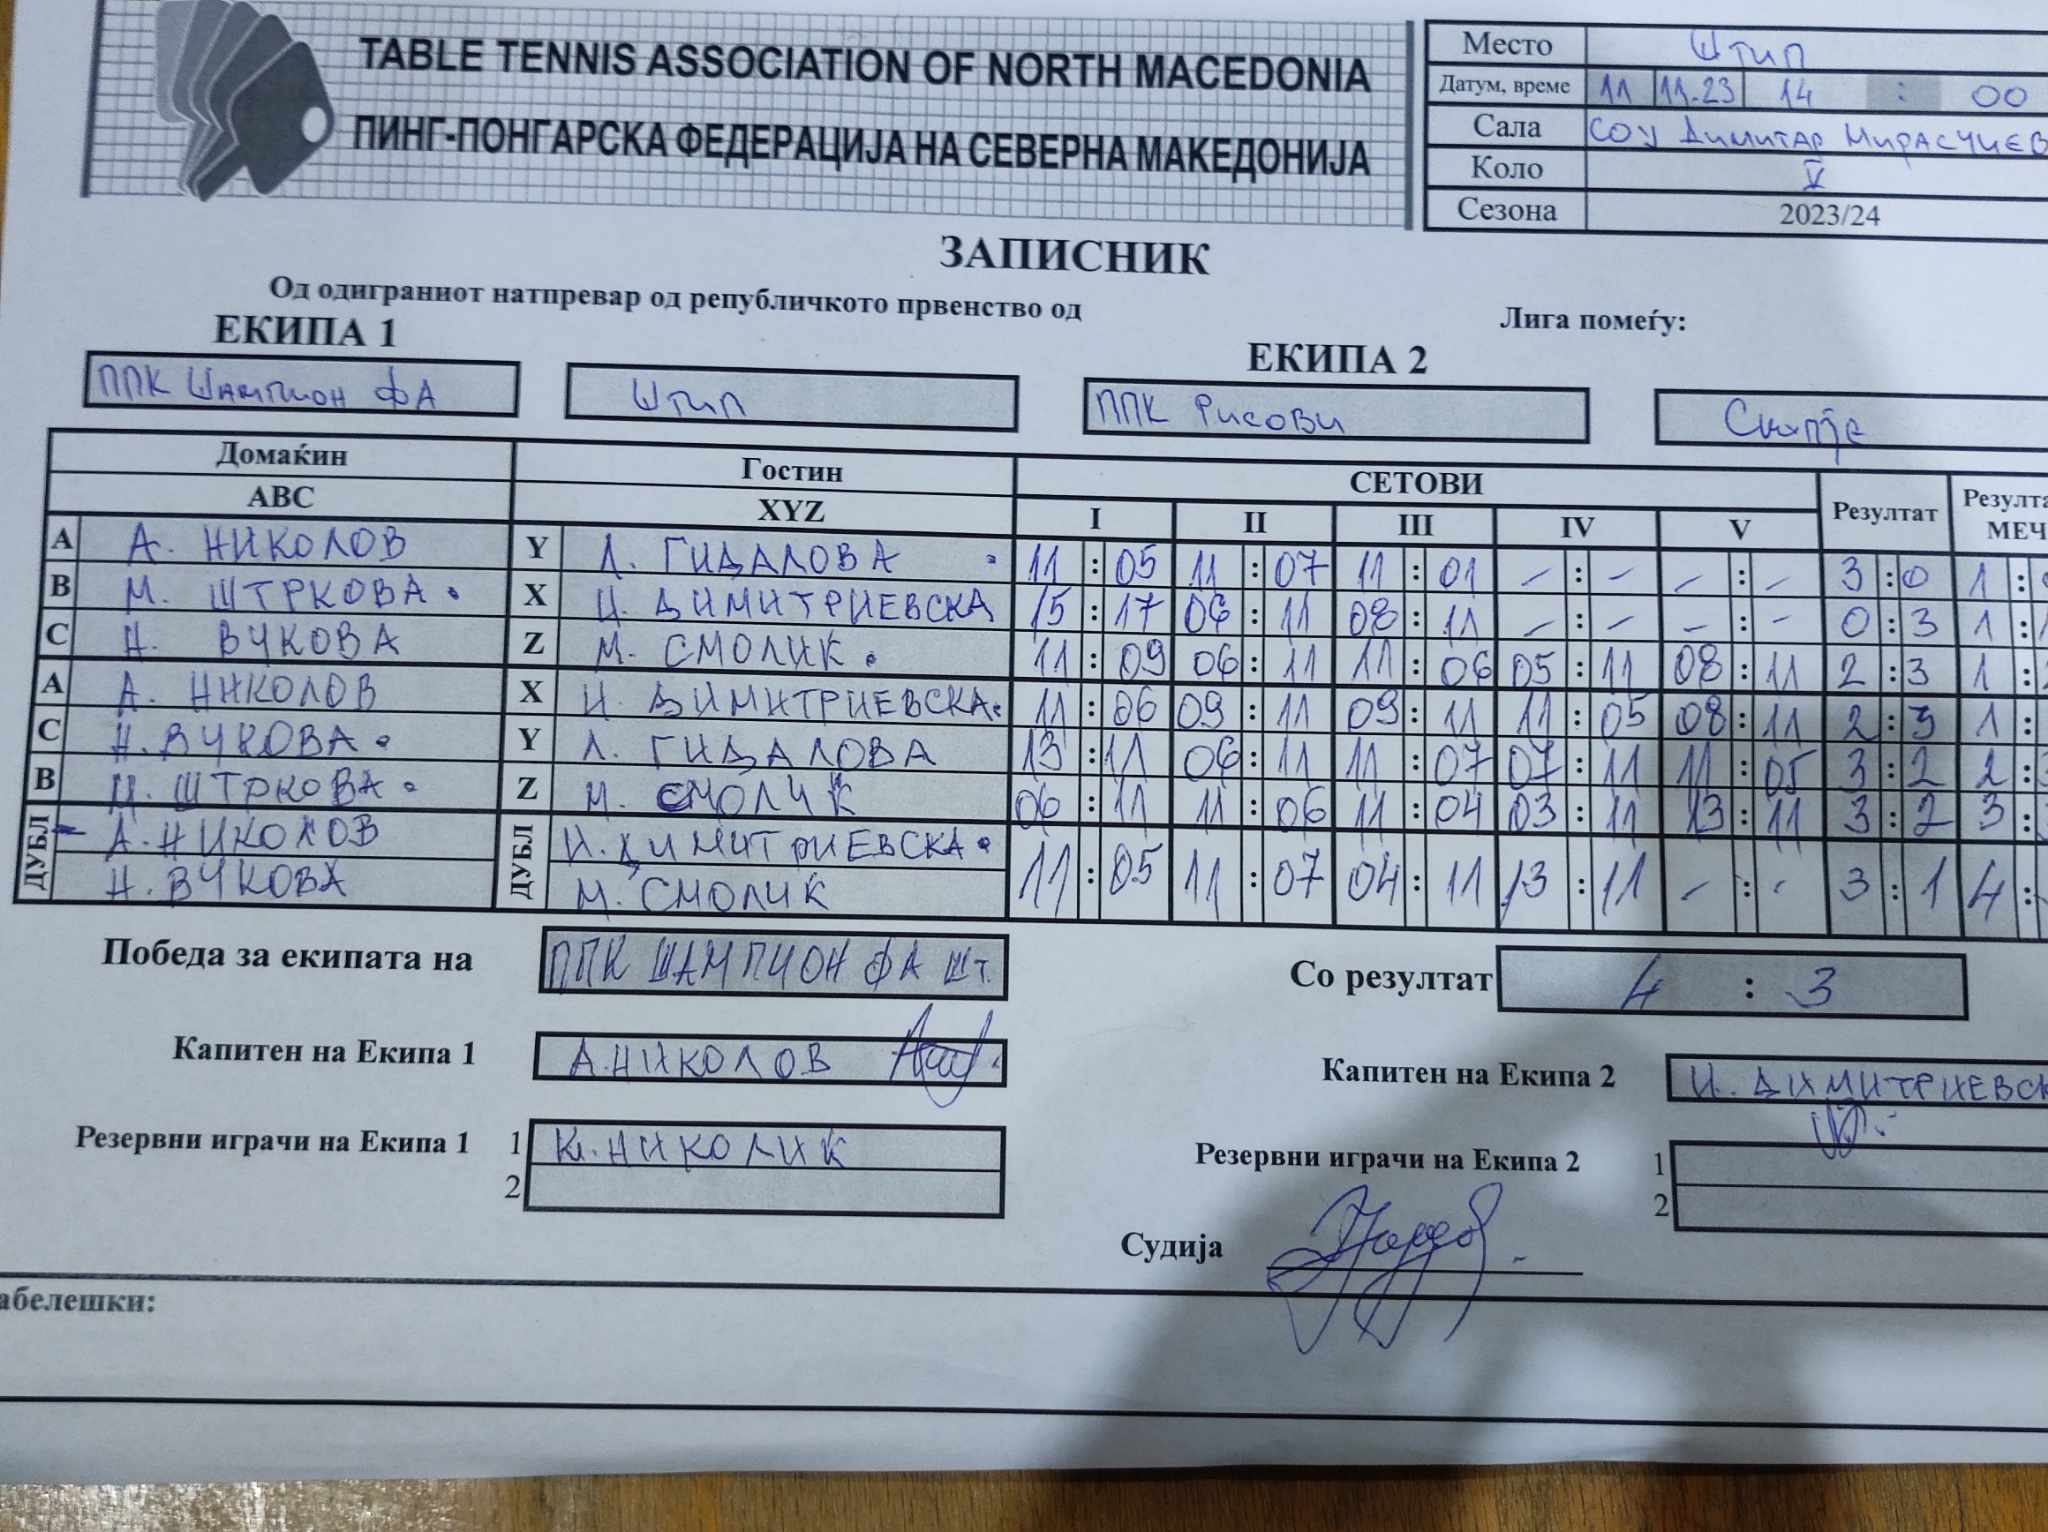 TABLE TENNIS ASSOCIATION OF NORTH MACEDONIA
ПИНГ-ПОНГАРСКА ФЕДЕРАЦИЈА НА СЕВЕРНА МАКЕДОНИЈА
Место Штип
Датум, време 11 11.23 14 : 00
Сала СОУ Димитар Мирасчиев
Коло V
Сезона 2023/24
ЗАПИСНИК
Од одиграниот натпревар од републичкото првенство од
Лига помеѓу:
ЕКИПА 1 ЕКИПА 2
ППК Шампион ФА Штип ППК Рисови Скопје
Домаќин Гостин СЕТОВИ Резултат
ABC XYZ I II III IV V МЕЧ
A А. НИКОЛОВ Y Л. ГИДАЛОВА 11 : 05 11 : 07 11 : 01 - : - - : - 3 : 0 1 :
B М. ШТРКОВА X И. ДИМИТРИЕВСКА 15 : 17 06 : 11 08 : 11 - : - - : - 0 : 3 1 :
C Н. ВУКОВА Z М. СМОЛИК 11 : 09 06 : 11 11 : 06 05 : 11 08 : 11 2 : 3 1 :
A А. НИКОЛОВ X И. ДИМИТРИЕВСКА 11 : 06 09 : 11 09 : 11 11 : 05 08 : 11 2 : 3 1 :
C Н. ВУКОВА Y Л. ГИДАЛОВА 13 : 11 06 : 11 11 : 07 07 : 11 11 : 05 3 : 2 2 :
B М. ШТРКОВА Z М. СМОЛИК 06 : 11 11 : 06 11 : 04 03 : 11 13 : 11 3 : 2 3 :
ДУБЛ А. НИКОЛОВ ДУБЛ И. ДИМИТРИЕВСКА 11 : 05 11 : 07 04 : 11 13 : 11 - : - 3 : 1 4 :
Н. ВУКОВА М. СМОЛИК
Победа за екипата на ППК ШАМПИОН ФА ШТ. Со резултат 4 : 3
Капитен на Екипа 1 А. НИКОЛОВ Капитен на Екипа 2 И. ДИМИТРИЕВСК
Резервни играчи на Екипа 1 1 К. НИКОЛИК Резервни играчи на Екипа 2 1
2 2
Судија
абелешки: